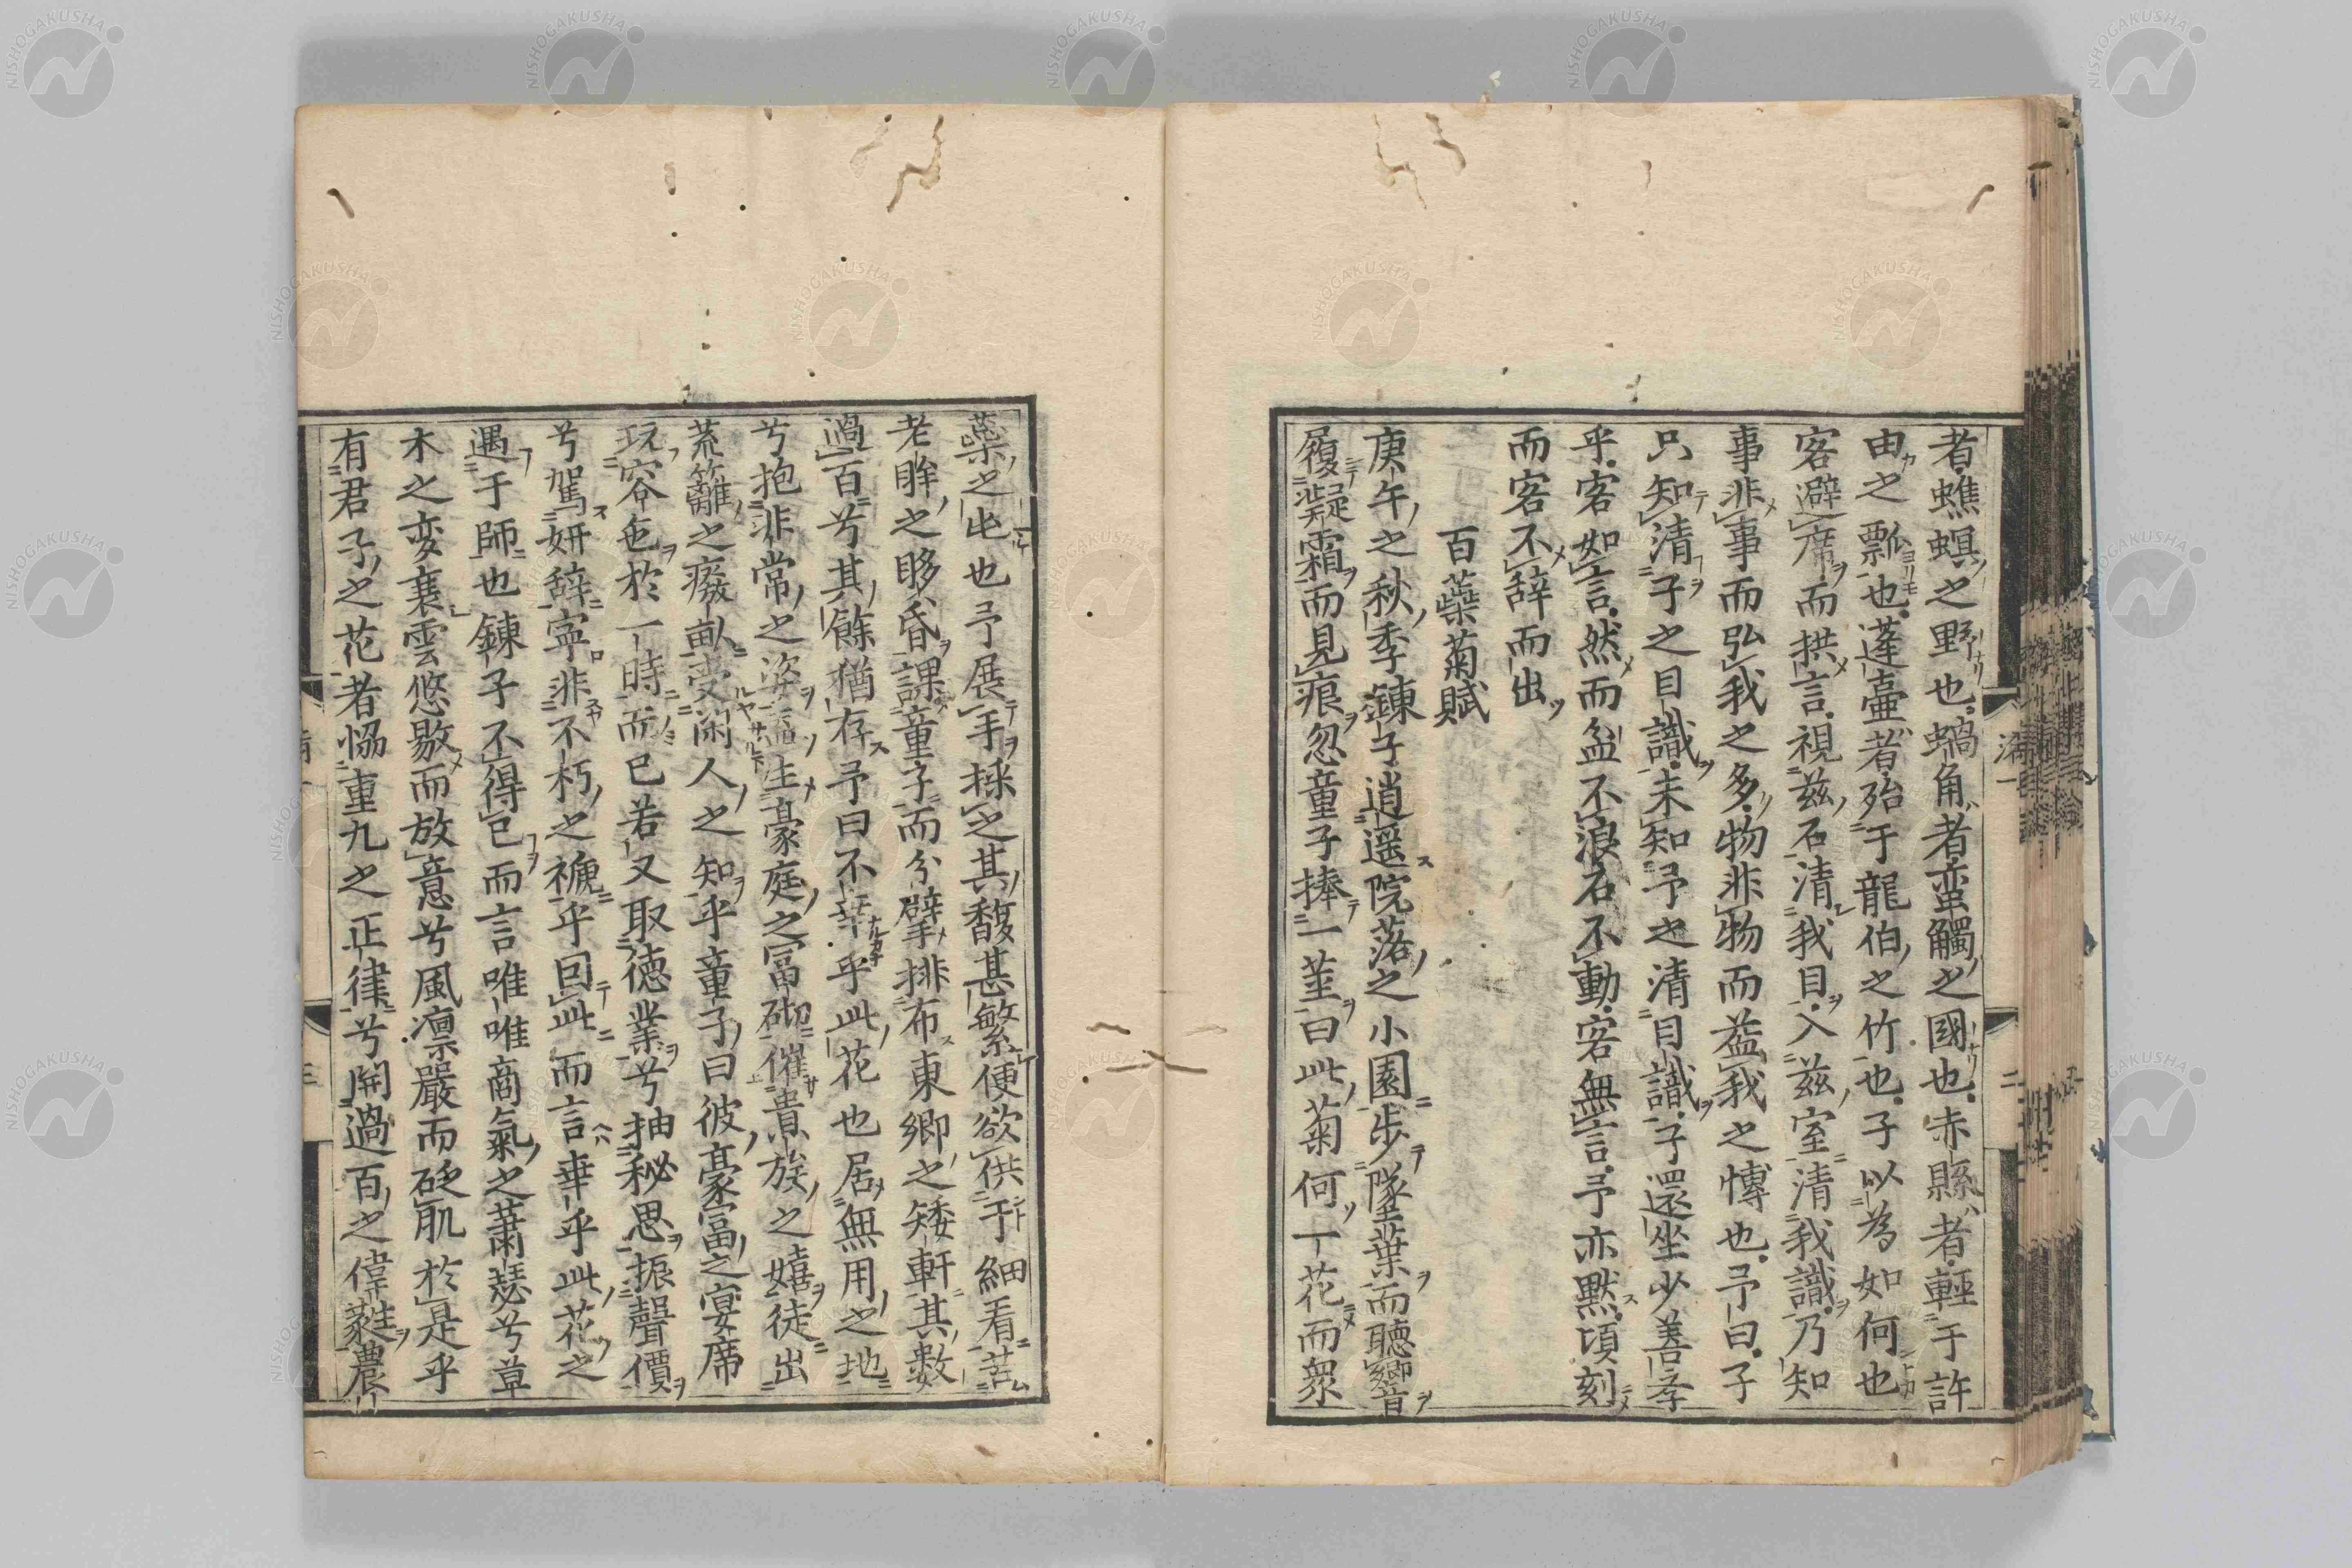 者蟭螟之野也蝸角者蛮觸之國也赤縣者輕于許
由之瓢也蓬壷者殆于龍伯之竹也子以為如何也
客避席而拱言視茲石清我目入茲室清我識乃知
事非事而弘我之多物非物而益我之博也予曰子
只知清子之目識未知予之清目識子還坐少善孝
乎客如言然而盆不浪石不動客無言予亦黙頃刻
而客不辞而出
百蘂菊賦
庚午之秋季錬子逍遥院落之小園歩墜葉而聴響
履凝霜而見痕忽童子捧一茎曰此菊何一花而衆
蘂之也予展手採之其馥甚繁便欲供于細看苦
老眸之眵昏課童子而分擘排布東郷之矮軒其数
過百兮其餘猶存予曰不幸乎此花也居無用之地
兮抱非常之姿盍生豪庭之冨砌催貴族之嬉徒出
荒籬之癈畝受閑人之知乎童子曰彼豪富之宴席
玩容色於一時而已若又取徳業兮抽秘思振聲價
兮駕妍辞寧非不朽之䙿乎回此而言幸乎此花之
遇于師也錬子不得已而言唯唯商氣之蕭瑟兮草
木之変衰雲悠敭而放意兮風凛嚴而砭肌於是乎
有君子之花者協重九之正律兮開過百之偉蘂農